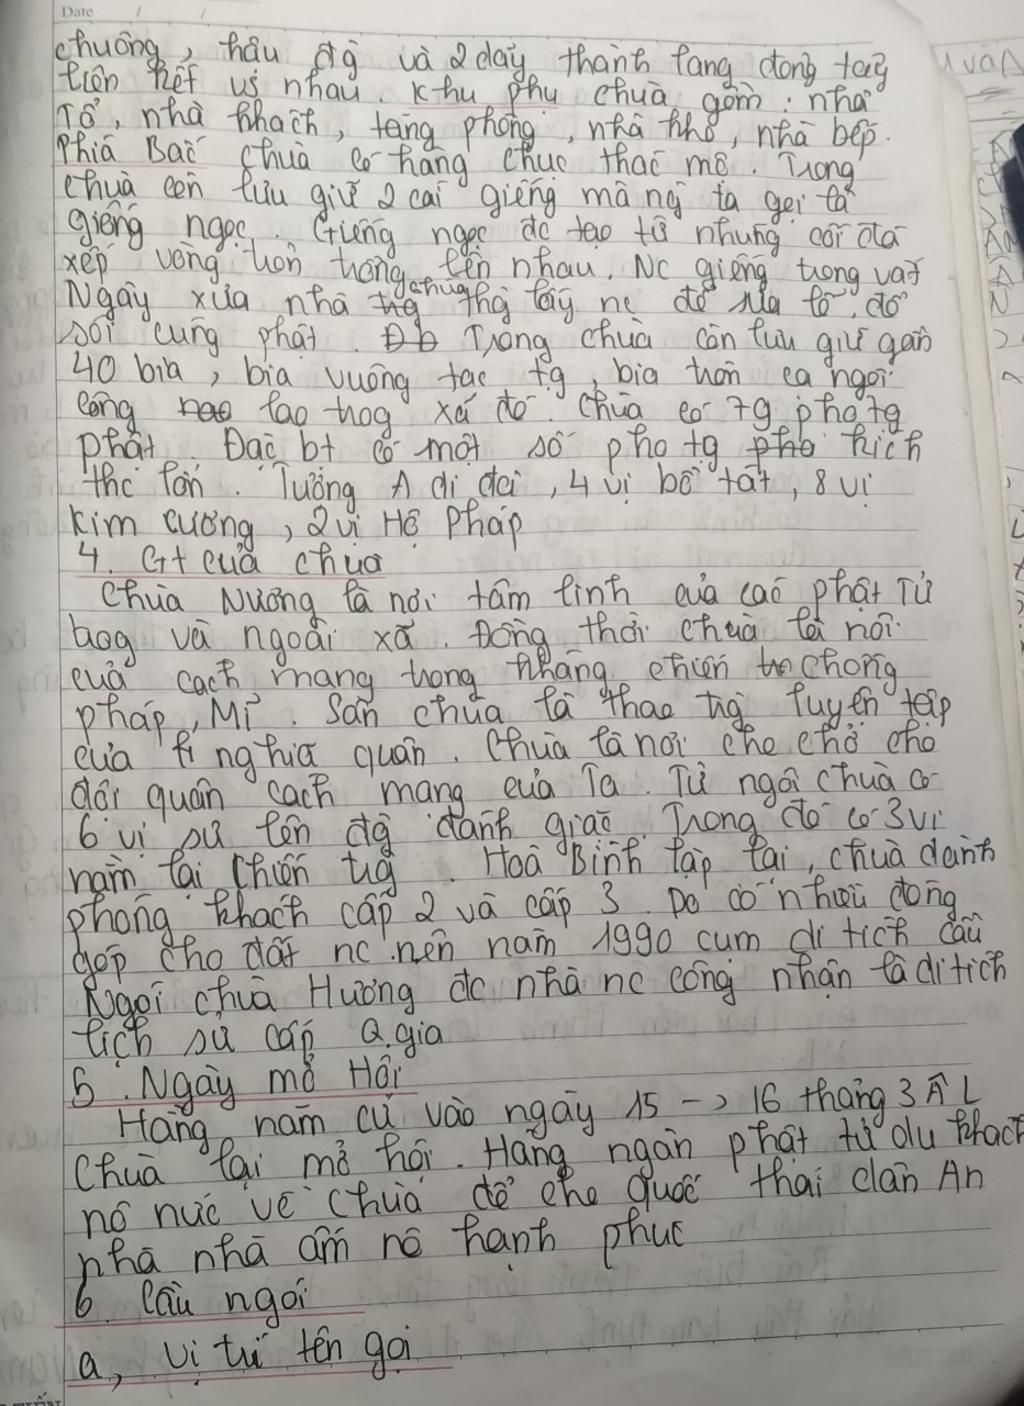 Date / /
chuông, hậu đg và 2 dãy thành lang đong tây
liên kết vs nhau. Khu phụ chùa gồm: nhà
Tổ, nhà khách, tăng phòng, nhà kho, nhà bếp.
Phía Bắc chùa có hàng chục tháp mộ. Trong
chùa còn lưu giữ 2 cái giếng mà ng ta gọi là
giếng ngọc. Giếng ngọc đc tạo từ những cối đá
xếp vòng tròn trồng lên nhau. Nc giếng trong vắt
Ngày xưa nhà chùa thg lấy nc để sửa lễ, đồ
sôi cúng phật. Trong chùa còn lưu giữ gần
40 bia, bia vuông tạc tg, bia tròn ca ngợi
công lao trog xã đó. Chùa có 7g pho tg
phật. Đặc bt có một số pho tg kích
thc lớn. Tưởng A di đà, 4 vị bồ tát, 8 vị
Kim cương, 2 vị Hộ Pháp
4. Gt của chùa
Chùa Nương là nơi tâm linh của các phật Tử
trog và ngoài xã. Đồng thời chùa là nôi
của cách mạng trong kháng chiến chống
pháp, Mĩ. Sân chùa là thao trg luyện tập
của nghĩa quân. Chùa là nơi che chở cho
đội quân cách mạng của Ta. Từ ngôi chùa có
6 vị sư lên đg đánh giặc. Trong đó có 3 vị
nằm lại chiến trg. Hoà Bình lập lại, chùa dành
phòng khách cấp 2 và cấp 3. Do có nhiều đóng
góp cho đất nc nên năm 1990 cụm di tích Cầu
Ngói chùa Hương đc nhà nc công nhận là di tích
lịch sử cấp Q.gia
5. Ngày mở Hội
Hàng năm cứ vào ngày 15 -> 16 tháng 3 ÂL
Chùa lại mở hội. Hàng ngàn phật tử du khách
nô nức về chùa để che quốc thái dân An
nhà nhà ấm nô hạnh phúc
6. Cầu ngói
a, Vị trí tên gọi